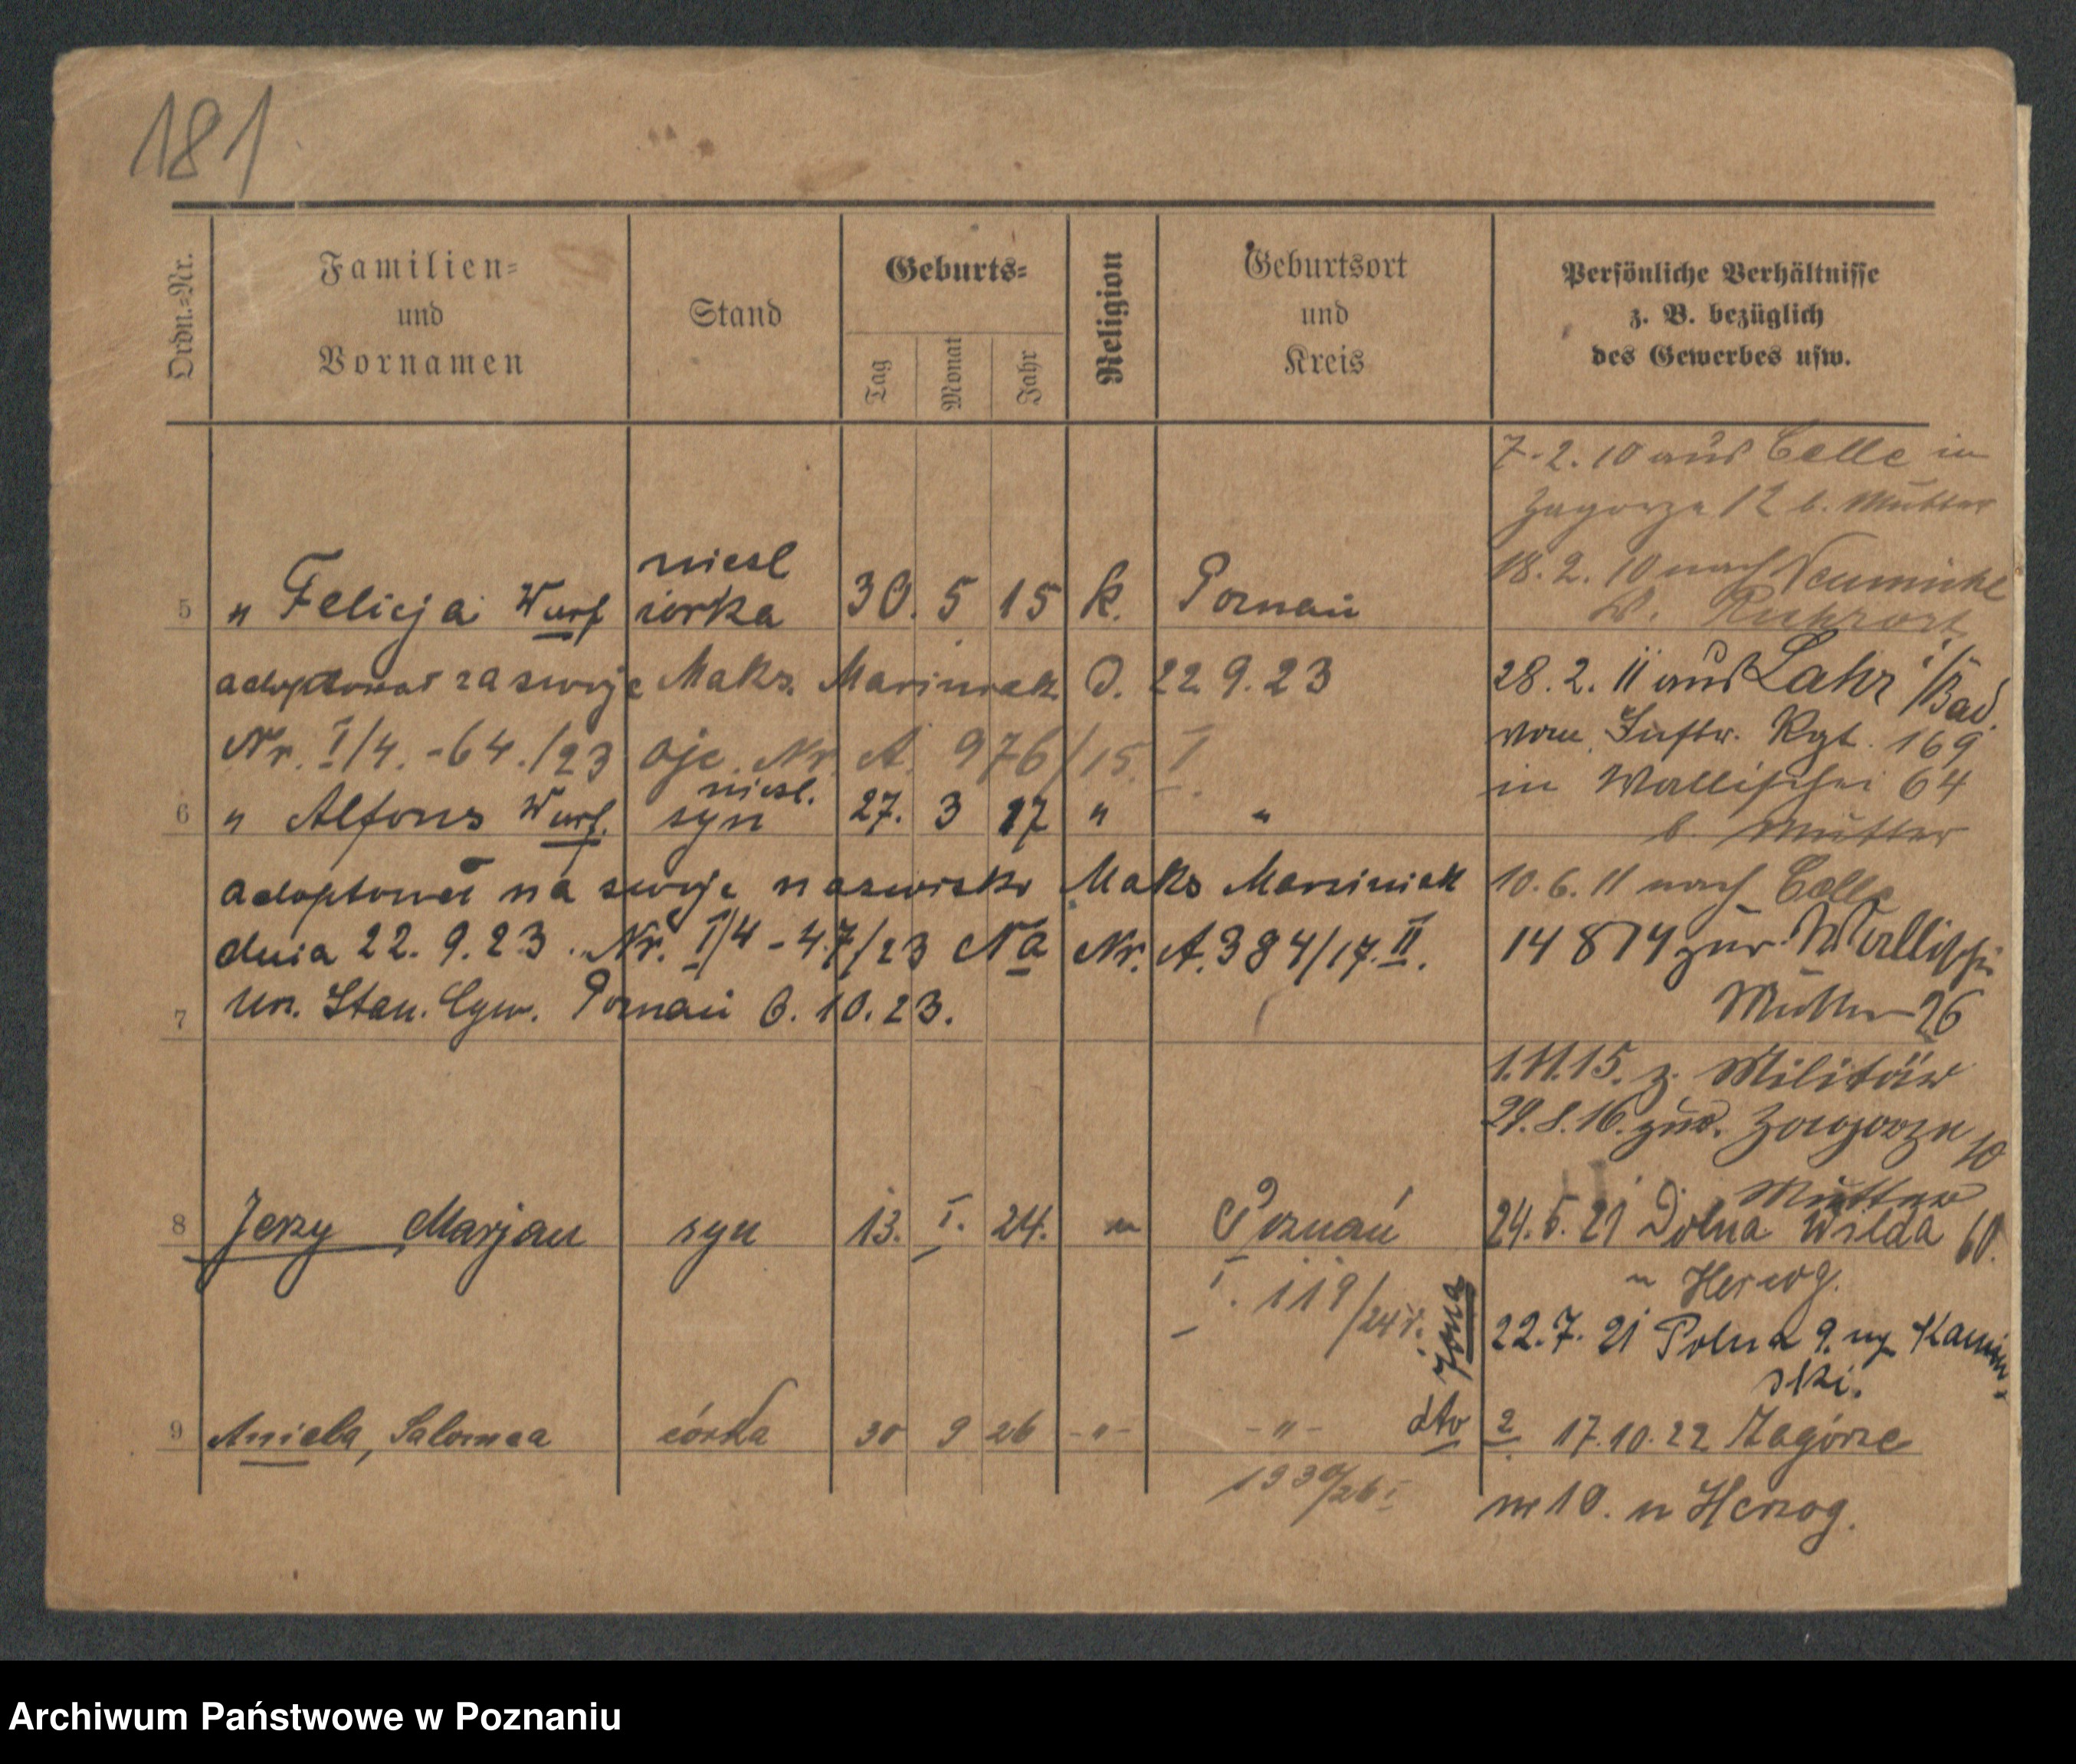 181
Ordn.-Nr.
Familien-
und
Vornamen
Stand
Geburts-
Tag
Monat
Jahr
Religion
Geburtsort
und
Kreis
Persönliche Verhältnisse
z. B. bezüglich
des Gewerbes usw.
niesl
5 " Felicja Wurf córka 30. 5 15 k. Poznań
adoptował za swoje Maks. Marciniak d. 22. 9. 23
Nr. I/4. -64./23 Nr. A. 976/15. I
niesl.
6 " Alfons Wurf. syn 27. 3 17 " "
adoptował na swoje nazwisko Maks Marciniak
dnia 22. 9. 23. Nr. I/4 - 47/23 Nr. A. 384/17. II.
Urz. Stan. Cyw. Poznań 6. 10. 23.
7
8 Jerzy Marjan syn 13. I. 24. " Poznań
I. 119/24 r.
żona
9 Aniela, Salomea córka 30 9 26 -"- -"-
dto
1930/26 I
7. 2. 10 aus Celle in
Zagorze 12 b. Mutter
18. 2. 10 nach
Ruhrort
28. 2. 11 aus Lahr i/Bad.
vom Inftr. Rgt. 169
in Wallischei 64
b. Mutter
10. 6. 11 nach Celle
14 8 14 zur. Wallischei
Mutter 26
1. 11. 15. z. Militär
29. 8. 16. zur. Zagorze 10
Mutter
24. 5. 21 Dolna Wilda 60.
u Herzog.
22. 7. 21 Polna 9. Kamin-
ski.
2 17. 10. 22 Zagórze
nr 10. u Herzog.
Archiwum Państwowe w Poznaniu